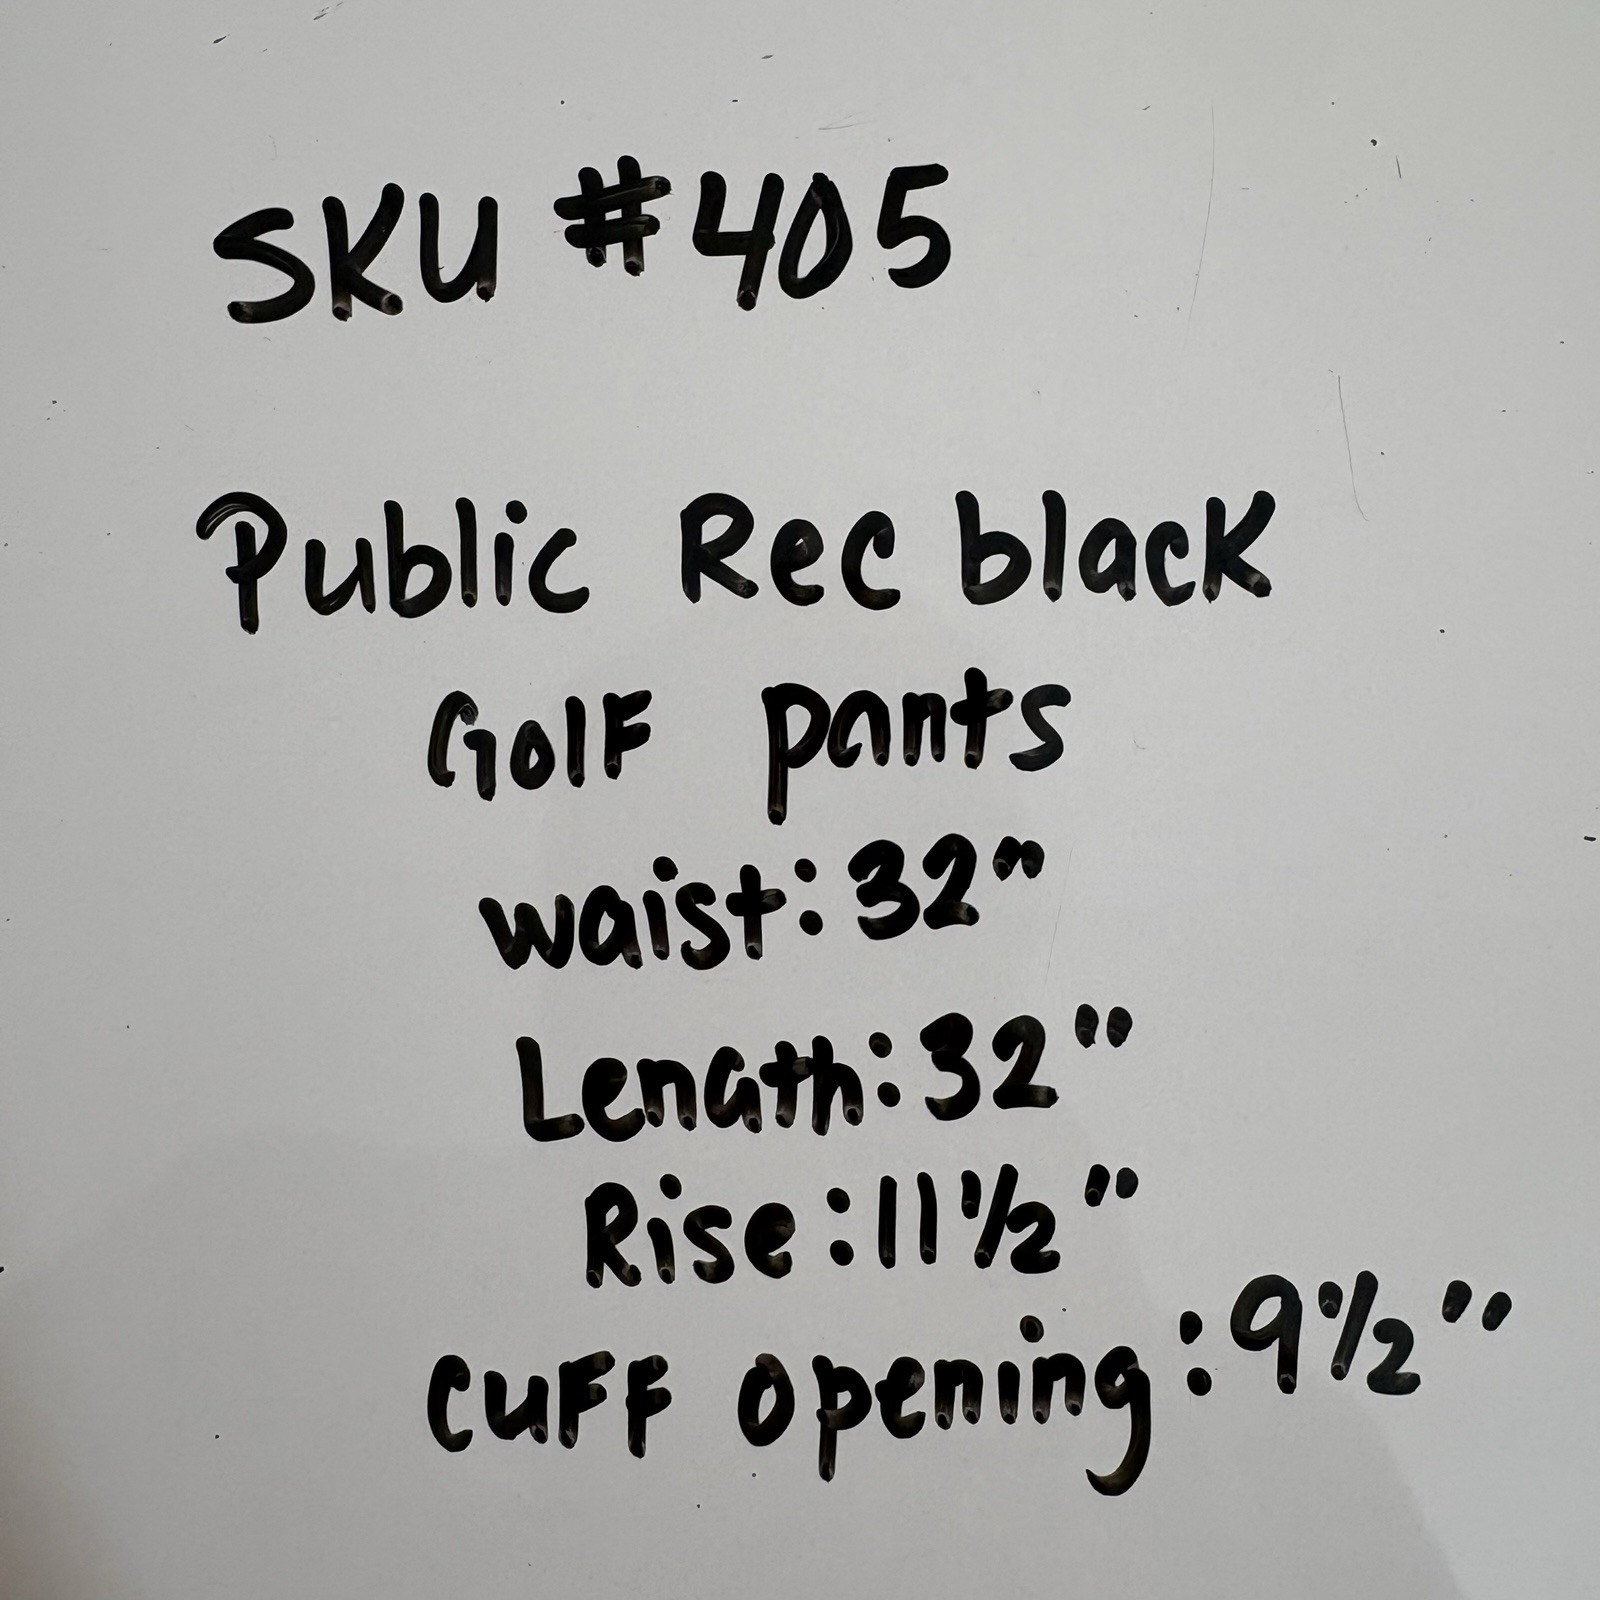 SKU #405
Public Rec black
Golf pants
waist: 32"
Lenath: 32"
Rise: 11 1/2"
Cuff opening: 9 1/2"